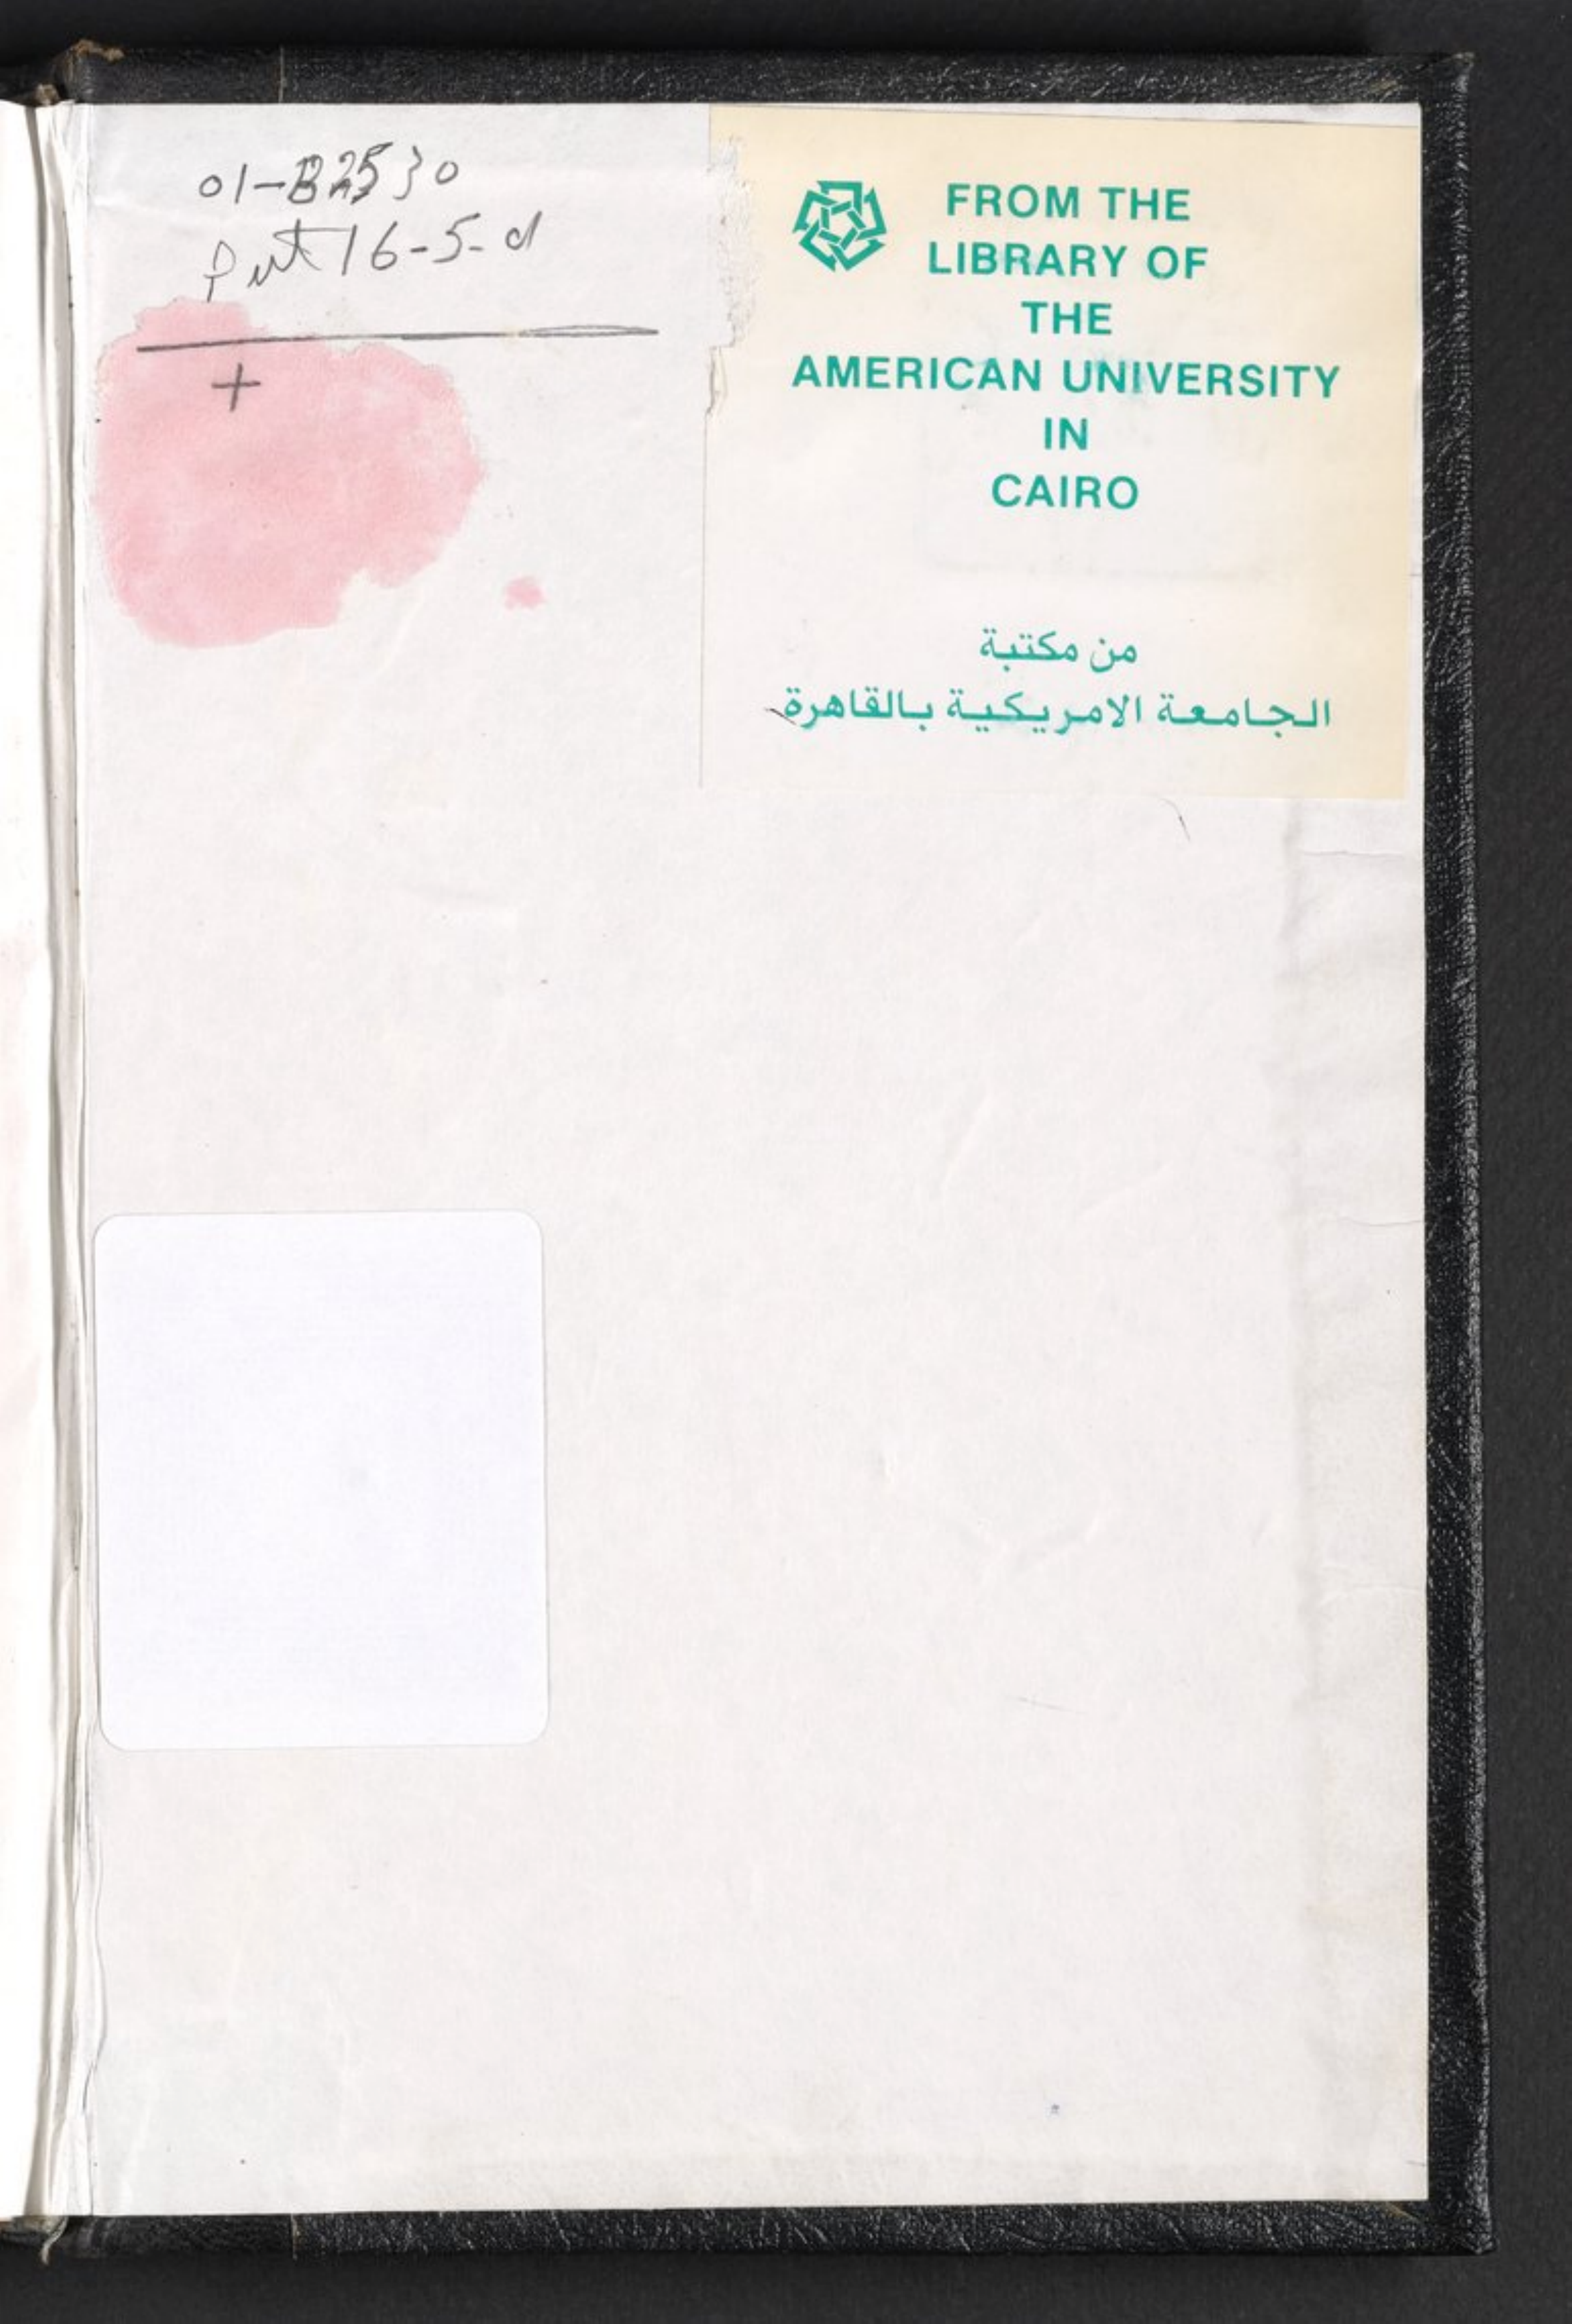 01-B2530
16-5-d
+
FROM THE
LIBRARY OF
THE
AMERICAN UNIVERSITY
IN
CAIRO
من مكتبة
الجامعة الامريكية بالقاهرة